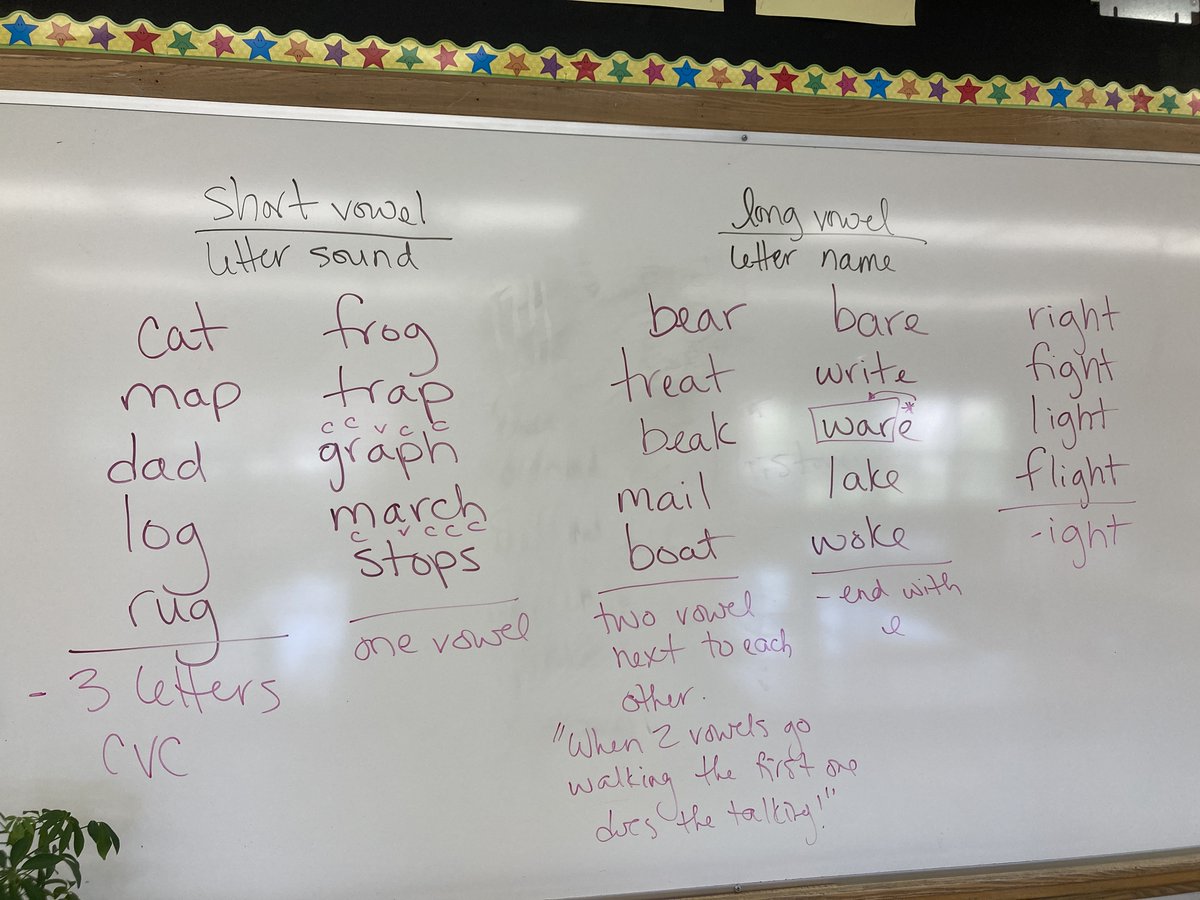 short vowel
letter sound
cat
map
dad
log
rug
- 3 letters
CVC
frog
trap
c c v c c
graph
march
c v c c c
stops
one vowel
long vowel
letter name
bear
treat
beak
mail
boat
two vowel
next to each
other.
"When 2 vowels go
walking the first one
does the talking!"
bare
write
ware*
lake
woke
- end with
e
right
fight
light
flight
-ight